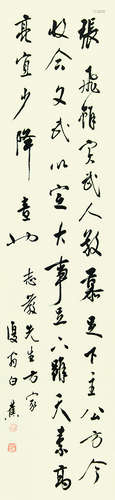 張飛雖實武人敬慕足下主公方今
收合文武以定大事足下雖天素高
亮宜少降意也
志發先生方家
復翁白蕉